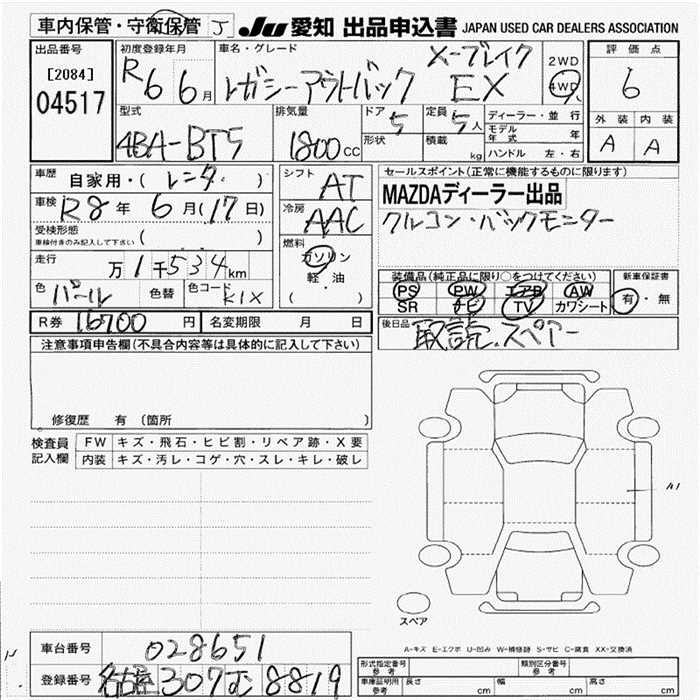 車内保管・守衛保管 J JU 愛知 出品申込書 JAPAN USED CAR DEALERS ASSOCIATION
出品番号 [2084] 04517
初度登録年月 R6 6月
車名・グレード レガシーアウトバック X-ブレイク EX
2WD 4WD
評価点 6
外装 内装
A A
型式 4BA-BT5
排気量 1800cc
ドア 5 形状
定員 5人 積載 kg
ディーラー・並行
モデル年式 年
ハンドル 左・右
車歴 自家用・( レンタ )
車検 R8年 6月(17日)
受検形態 車検付きのみ記入して下さい ( )
走行 万1千534km
色 パール 色替 色コード K1X
シフト AT
冷房 AAC
燃料 ガソリン
軽・油
( )
セールスポイント(正常に機能するものに限ります)
MAZDAディーラー出品
クルコン・バックモニター
装備品(純正品に限り○をつけてください)
PS PW エアB AW
SR ナビ TV カワシート
新車保証書
有・無
R券 16700円 名変期限 月 日
後日品 取説、スペアー
注意事項申告欄(不具合内容等は具体的に記入して下さい)
修復歴 有 (箇所 )
検査員記入欄
FW キズ・飛石・ヒビ割・リペア跡・X要
内装 キズ・汚レ・コゲ・穴・スレ・キレ・破レ
A1
スペア
A-キズ E-エクボ U-凹み W-補修跡 S-サビ C-腐食 XX-交換済
車台番号 028651
登録番号 名古屋 307 む 8819
形式指定番号 参考 類別区分番号 参考
車庫証明用 参考 長さ cm 幅 cm 高さ cm